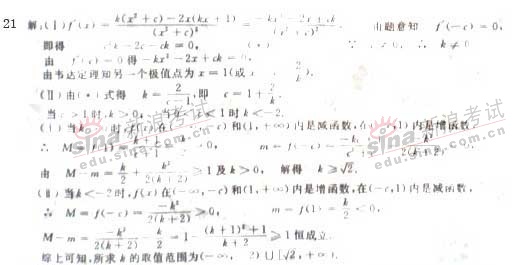 21 解:(Ⅰ) f'(x) = k(x²+c)-2x(kx+1) / (x²+c)² = -kx²-2x+ck / (x²+c)² 由题意知 f'(-c)=0,
即得 c²k-2c-ck=0, (*) ∵ c≠0, ∴ k≠0
由 f'(x)=0得 -kx²-2x+ck=0,
由韦达定理知另一个极值点为 x=1(或
(Ⅱ)由(*)式得 k=2/(c-1),即 c=1+2/k.
当c>1时,k>0; 当0<c<1时 k<-2.
(ⅰ)当k 时,f(x)在( -c)和(1,+∞)内是减函数,在( ,1)内是增函数
∴ M=f(1)= m=f(-c)= -k²/2(k+2)
由 M-m=k/2+k²/2(k+2)≥1及k>0, 解得 k≥√2.
(ⅱ)当k<-2时,f(x)在(-∞,-c)和(1,+∞)内是增函数,在(-c,1)内是减函数,
∴ M=f(-c)=-k²/2(k+2)≥0, m=f(1)=k/2<0,
M-m=-k²/2(k+2)-k/2=1-(k+1)²+1/k+2≥1恒成立.
综上可知,所求k的取值范围为(-∞, 2)∪[√2,+∞).
sina 新浪考试
edu.sina.com.cn
sina 新浪考试
edu.sina.com.cn